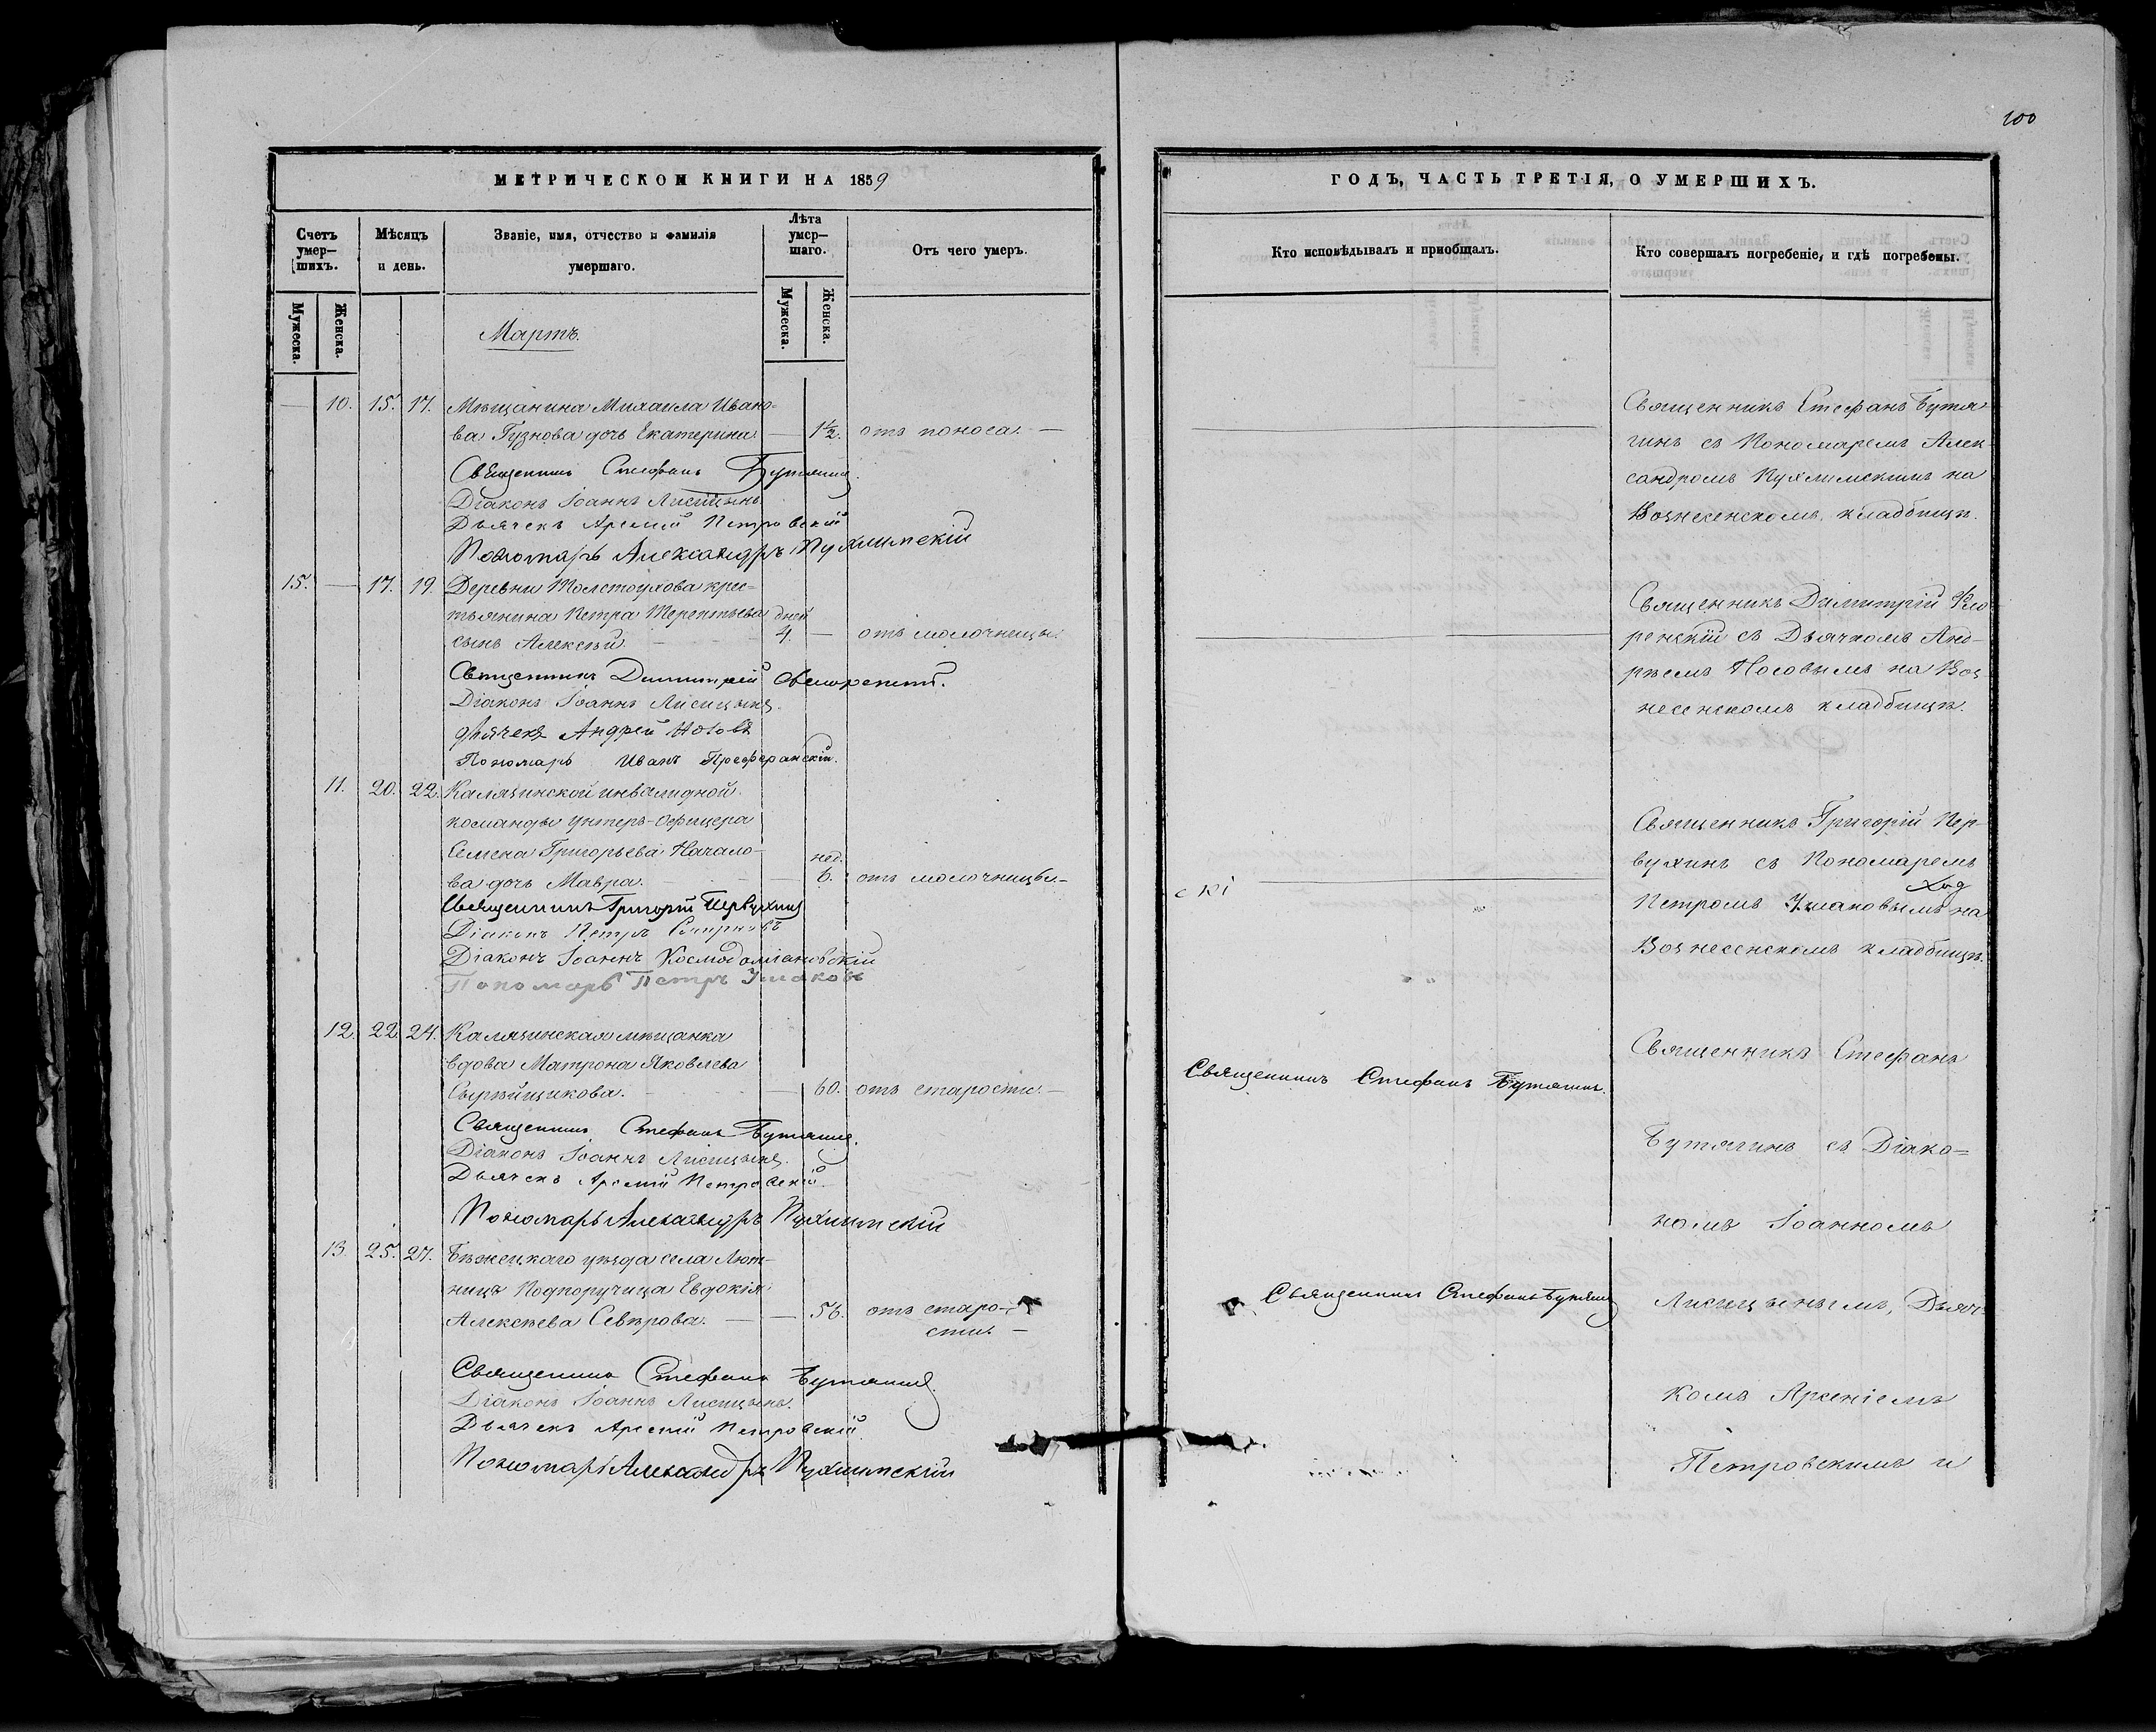 100
МЕТРИЧЕСКОЙ КНИГИ НА 1859
Счетъ умер-шихъ.
Мѣсяцъ и день.
Званіе, имя, отчество и фамилія умершаго.
Лѣта умер-шаго.
Отъ чего умеръ.
Мужеска.
Женска.
Мужеска.
Женска.
Мартъ.
— 10. 15. 17. Мѣщанина Михаила Ивано-
ва Гузнова дочь Екатерина — 1½. отъ поноса. —
Священникъ Стефанъ Бутягинъ.
Діаконъ Іоаннъ Лисицынъ
Дьячекъ Арсеній Петровскій
Пономарь Александръ Пухлимскій
15. — 17. 19. Деревни Толстоухова крес-
тьянина Петра Терентьева дней
сынъ Алексѣй. 4. — отъ молочницы
Священникъ Димитрій Флоренскій.
Діаконъ Іоаннъ Лисицынъ.
дьячекъ Андрей Носовъ
Пономарь Иванъ Преферанскій.
11. 20. 22. Калязинской инвалидной
команды унтеръ-Офицера
Семена Григорьева Начало- нед.
ва дочь Мавра. — 6. отъ молочницы. —
Священникъ Григорій Первухинъ
Діаконъ Петръ Смирновъ
Діаконъ Іоаннъ Космодаміановскій
Пономарь Петръ Ушаковъ
12. 22. 24. Калязинская мѣщанка
вдова Матрона Яковлева
Сырейщикова. — 60. отъ старости. —
Священникъ Стефанъ Бутягинъ.
Діаконъ Іоаннъ Лисицынъ.
Дьячекъ Арсеній Петровскій.
Пономарь Александръ Пухлимскій
13. 25. 27. Бѣжецкаго уѣзда села Лют-
ницъ Подпоручица Евдокія
Алексѣева Севѣрова. — — 56. отъ старо-
сти. —
Священникъ Стефанъ Бутягинъ.
Діаконъ Іоаннъ Лисицынъ.
Дьячекъ Арсеній Петровскій.
Пономарь Александръ Пухлимскій
ГОДЪ, ЧАСТЬ ТРЕТІЯ, О УМЕРШИХЪ.
Кто исповѣдывалъ и пріобщалъ.
Кто совершалъ погребеніе, и гдѣ погребены.
Священникъ Стефанъ Бутя-
гинъ съ Пономаремъ Алек-
сандромъ Пухлимскимъ на
Вознесенскомъ кладбищѣ.
Священникъ Димитрій Фло-
ренскій съ Дьячкомъ Анд-
реемъ Носовымъ на Воз-
несенскомъ кладбищѣ.
Священникъ Григорій Пер-
вухинъ съ Пономаремъ
Петромъ Ушаковымъ на
Вознесенскомъ кладбищѣ.
Священникъ Стефанъ Бутягинъ.
Священникъ Стефанъ Бутягинъ
Священникъ Стефанъ
Бутягинъ съ Діако=
номъ Іоанномъ
Лисицынымъ, Дьяч-
комъ Арсеніемъ
Петровскимъ и